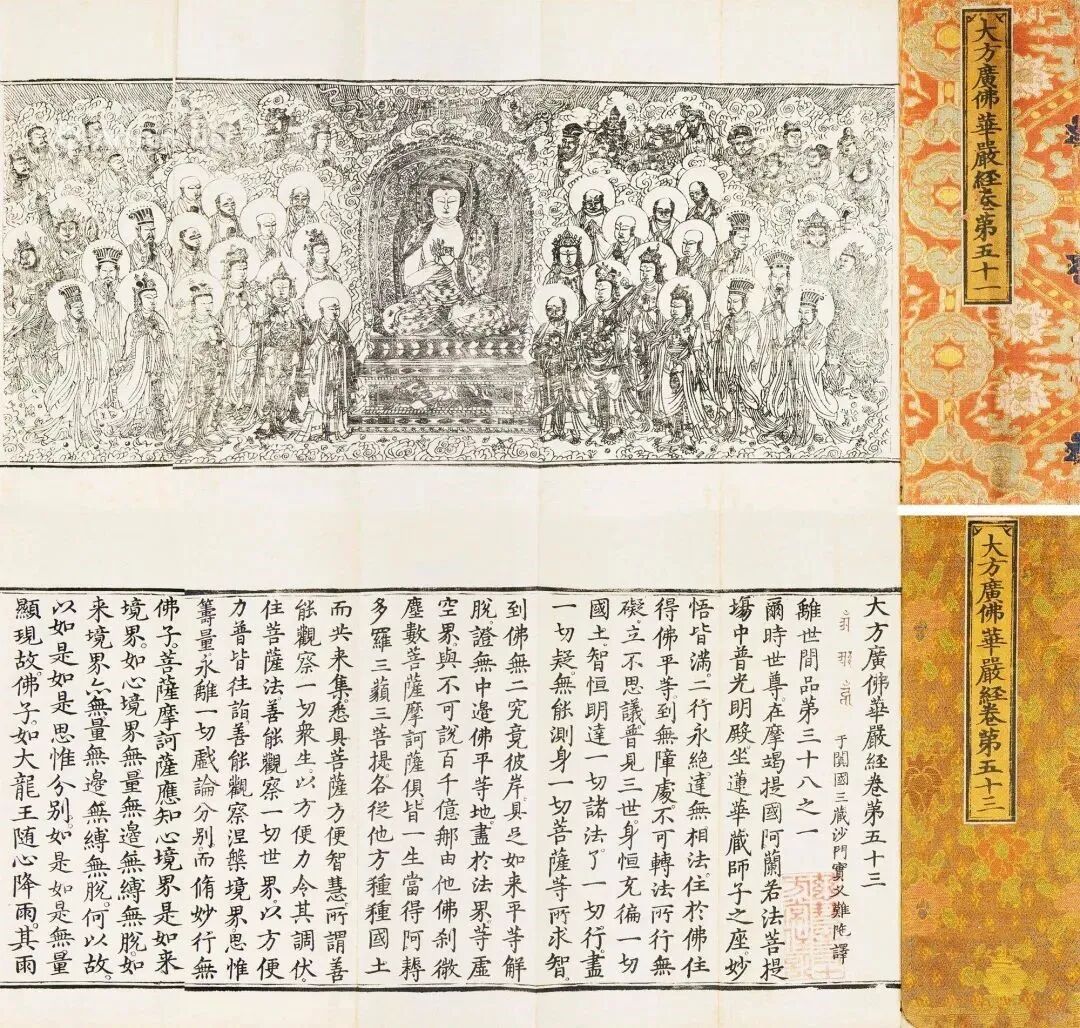 大方廣佛華嚴経卷第五十一
大方廣佛華嚴経卷第五十三
大方廣佛華嚴経卷第五十三
于闐國三藏沙門實叉難陁譯
離世間品第三十八之一
爾時世尊在摩竭提國阿蘭若法菩提
場中普光明殿坐蓮華藏師子之座妙
悟皆滿二行永絕達無相法住於佛住
得佛平等到無障處不可轉法所行無
礙立不思議普見三世身恒充徧一切
國土智恒明達一切諸法了一切行盡
一切疑無能測身一切菩薩等所求智
到佛無二究竟彼岸具足如来平等解
脫證無中邉佛平等地盡於法界等虛
空界與不可說百千億那由他佛刹微
塵數菩薩摩訶薩俱皆一生當得阿耨
多羅三藐三菩提各從他方種種國土
而共来集悉具菩薩方便智慧所謂善
能觀察一切衆生以方便力令其調伏
住菩薩法善能觀察一切世界以方便
力普皆往詣善能觀察涅槃境界思惟
籌量永離一切戲論分別而脩妙行無
佛子菩薩摩訶薩應知心境界是如来
境界如心境界無量無邉無縛無脫如
来境界亦無量無邉無縛無脫何以故
以如是如是思惟分別如是如是無量
顯現故佛子如大龍王随心降雨其雨